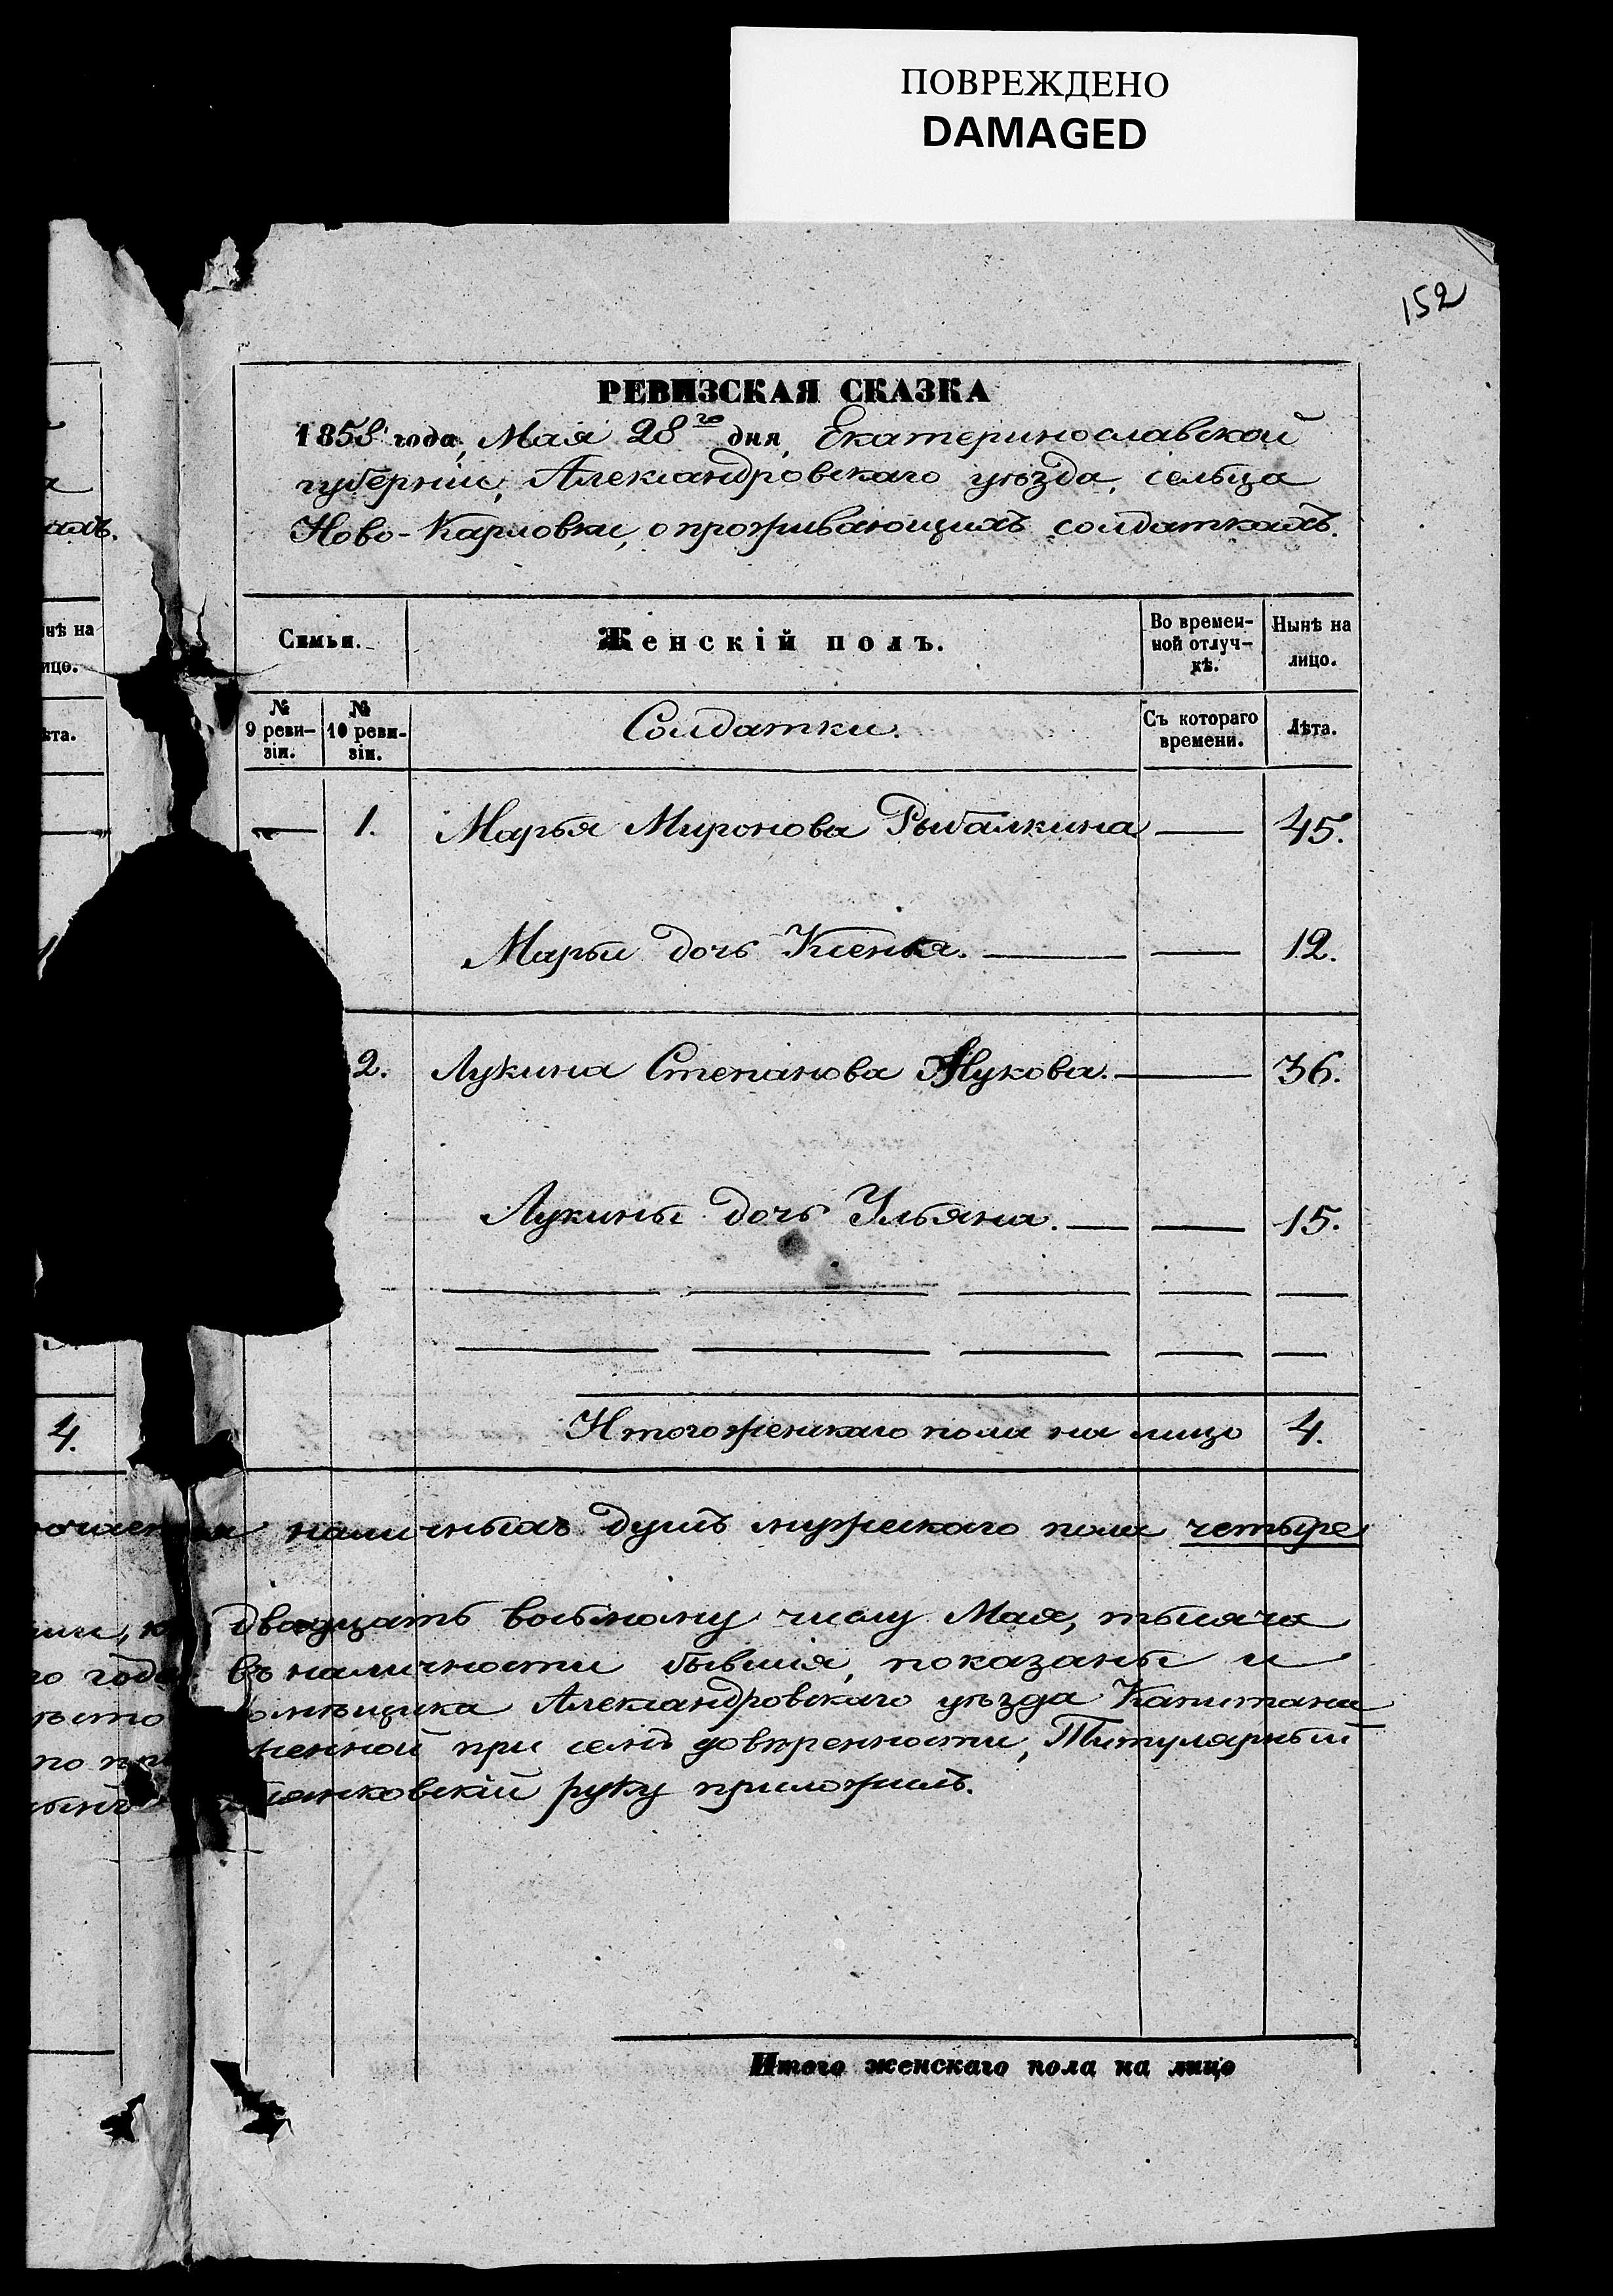 ПОВРЕЖДЕНО
DAMAGED
152
РЕВИЗСКАЯ СКАЗКА
1858 года, Мая 28го дня, Екатеринославской
губернiи, Александровскаго уѣзда, сельца
Ново-Карловки, о проживающихъ солдаткахъ.
Семьи.
Женскiй полъ.
Во времен-
ной отлуч-
кѣ.
Нынѣ на
лицо.
№
9 реви-
зiи.
№
10 реви-
зiи.
Солдатки.
Съ котораго
времени.
Лѣта.
1. Марья Миронова Рыбалкина — 45.
Марьи дочь Ксенья. — — 12.
2. Лукина Степанова Жукова. — 36.
Лукины дочь Ульяна. — — 15.
4. Итого женскаго пола на лицо 4.
наличныхъ душъ мужескаго пола четыре
двадцать восьмому числу Мая, тысяча
го года въ наличности бывшiя, показаны и
Александровскаго уѣзда Капитана
при семъ довѣренности, Титулярный
руку приложилъ.
Итого женскаго пола на лицо